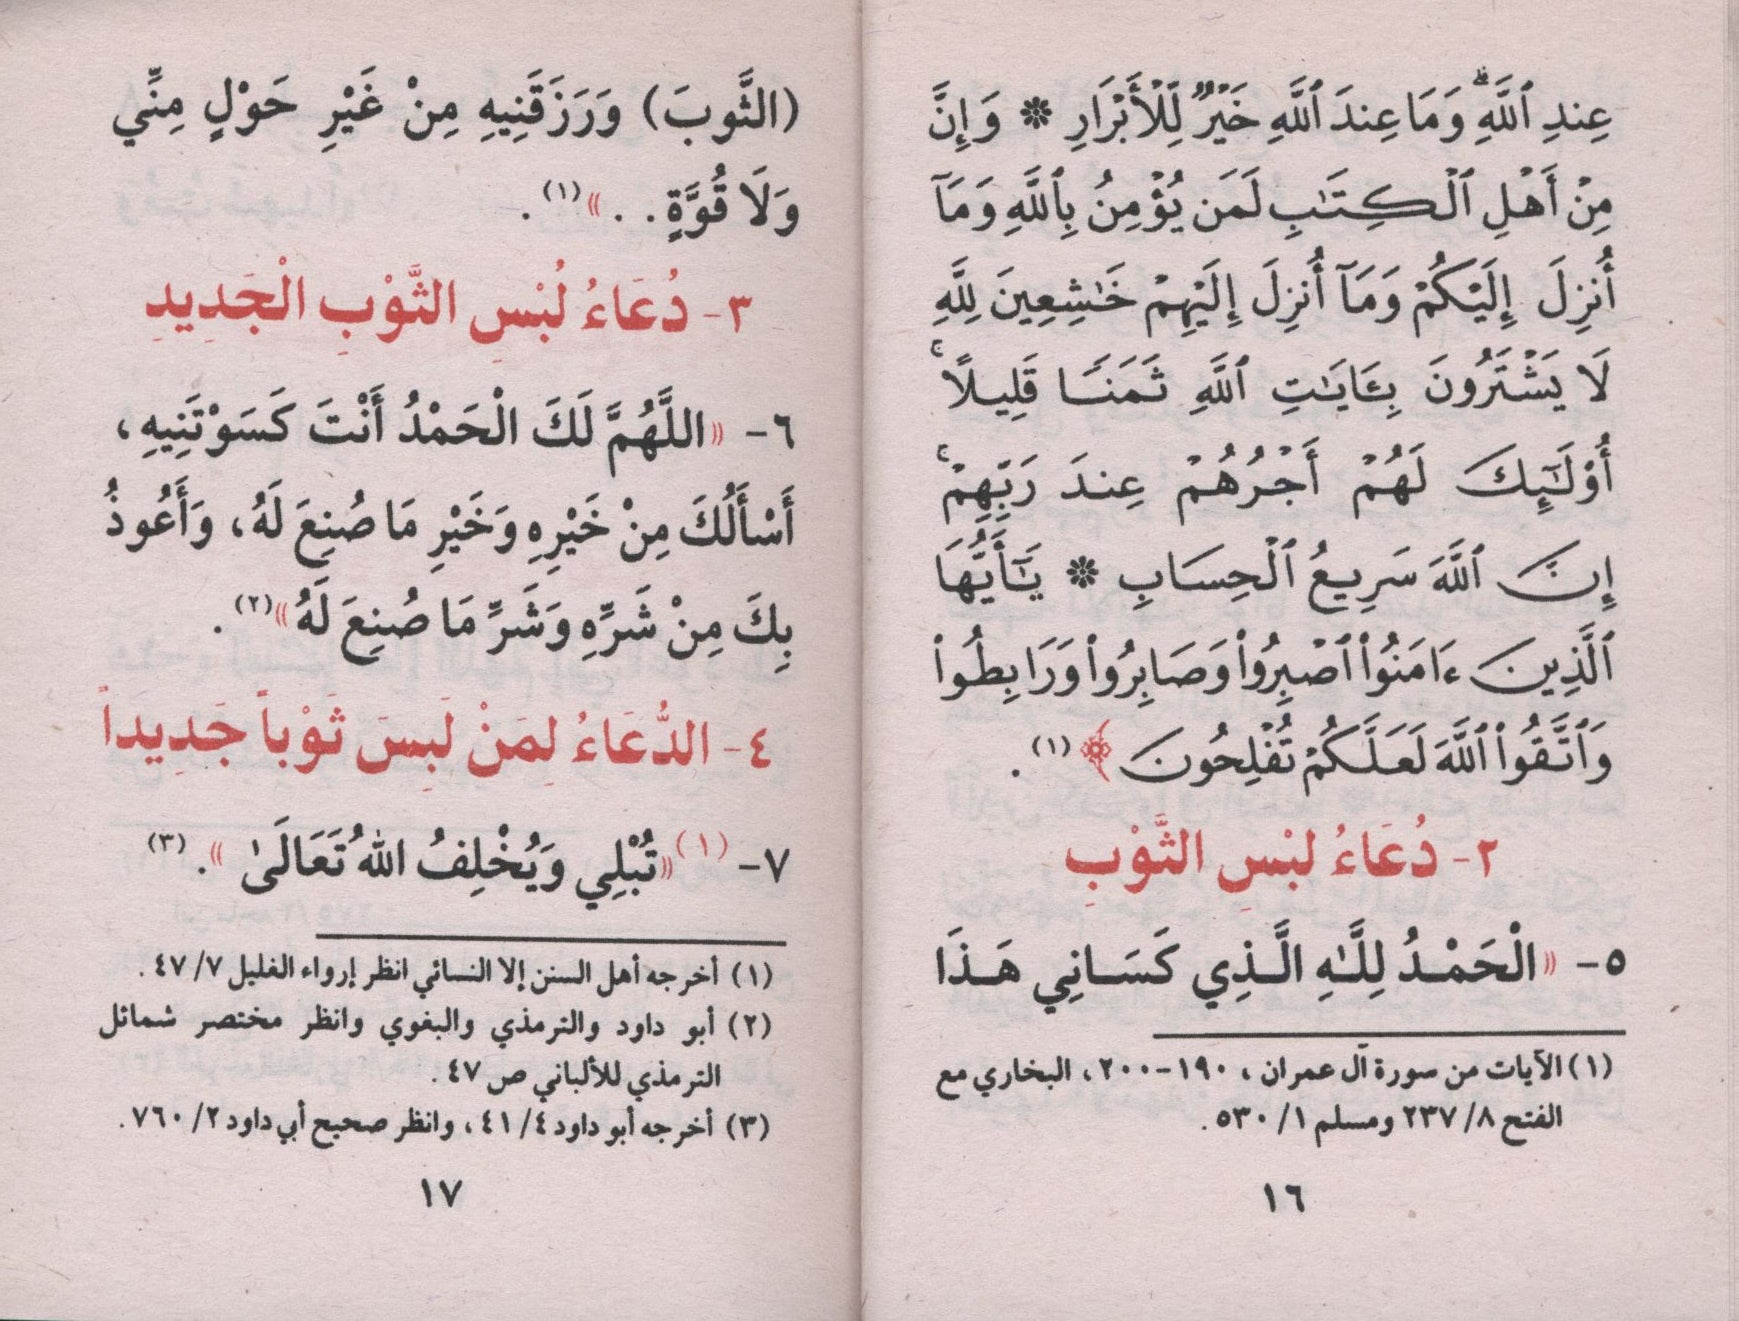 عِندِ ٱللَّهِ ۗ وَمَا عِندَ ٱللَّهِ خَيْرٌ لِّلْأَبْرَارِ * وَإِنَّ
مِنْ أَهْلِ ٱلْكِتَٰبِ لَمَن يُؤْمِنُ بِٱللَّهِ وَمَآ
أُنزِلَ إِلَيْكُمْ وَمَآ أُنزِلَ إِلَيْهِمْ خَٰشِعِينَ لِلَّهِ
لَا يَشْتَرُونَ بِـَٔايَٰتِ ٱللَّهِ ثَمَنًا قَلِيلًا ۚ
أُو۟لَٰٓئِكَ لَهُمْ أَجْرُهُمْ عِندَ رَبِّهِمْ ۗ
إِنَّ ٱللَّهَ سَرِيعُ ٱلْحِسَابِ * يَٰٓأَيُّهَا
ٱلَّذِينَ ءَامَنُوا۟ ٱصْبِرُوا۟ وَصَابِرُوا۟ وَرَابِطُوا۟
وَٱتَّقُوا۟ ٱللَّهَ لَعَلَّكُمْ تُفْلِحُونَ ﴾ (١).
٢- دُعَاءُ لبْسِ الثَّوْبِ
٥- «الْحَمْدُ لِلَّهِ الَّذِي كَسَانِي هَذَا
(١) الآيات من سورة آل عمران، ١٩٠-٢٠٠، البخاري مع
الفتح ٨/ ٢٣٧ ومسلم ١/ ٥٣٠.
١٦
(الثَّوبَ) وَرَزَقَنِيهِ مِنْ غَيْرِ حَوْلٍ مِنِّي
وَلَا قُوَّةٍ. . .»(١).
٣- دُعَاءُ لُبْسِ الثَّوْبِ الْجَدِيدِ
٦- «اللَّهُمَّ لَكَ الْحَمْدُ أَنْتَ كَسَوْتَنِيهِ،
أَسْأَلُكَ مِنْ خَيْرِهِ وَخَيْرِ مَا صُنِعَ لَهُ، وَأَعُوذُ
بِكَ مِنْ شَرِّهِ وَشَرِّ مَا صُنِعَ لَهُ»(٢).
٤- الدُّعَاءُ لِمَنْ لَبِسَ ثَوْباً جَدِيداً
٧- (١) «تُبْلِي وَيُخْلِفُ اللهُ تَعَالَىٰ». (٣)
(١) أخرجه أهل السنن إلا النسائي انظر إرواء الغليل ٧/ ٤٧.
(٢) أبو داود والترمذي والبغوي وانظر مختصر شمائل
الترمذي للألباني ص ٤٧.
(٣) أخرجه أبو داود ٤/ ٤١، وانظر صحيح أبي داود ٢/ ٧٦٠.
١٧